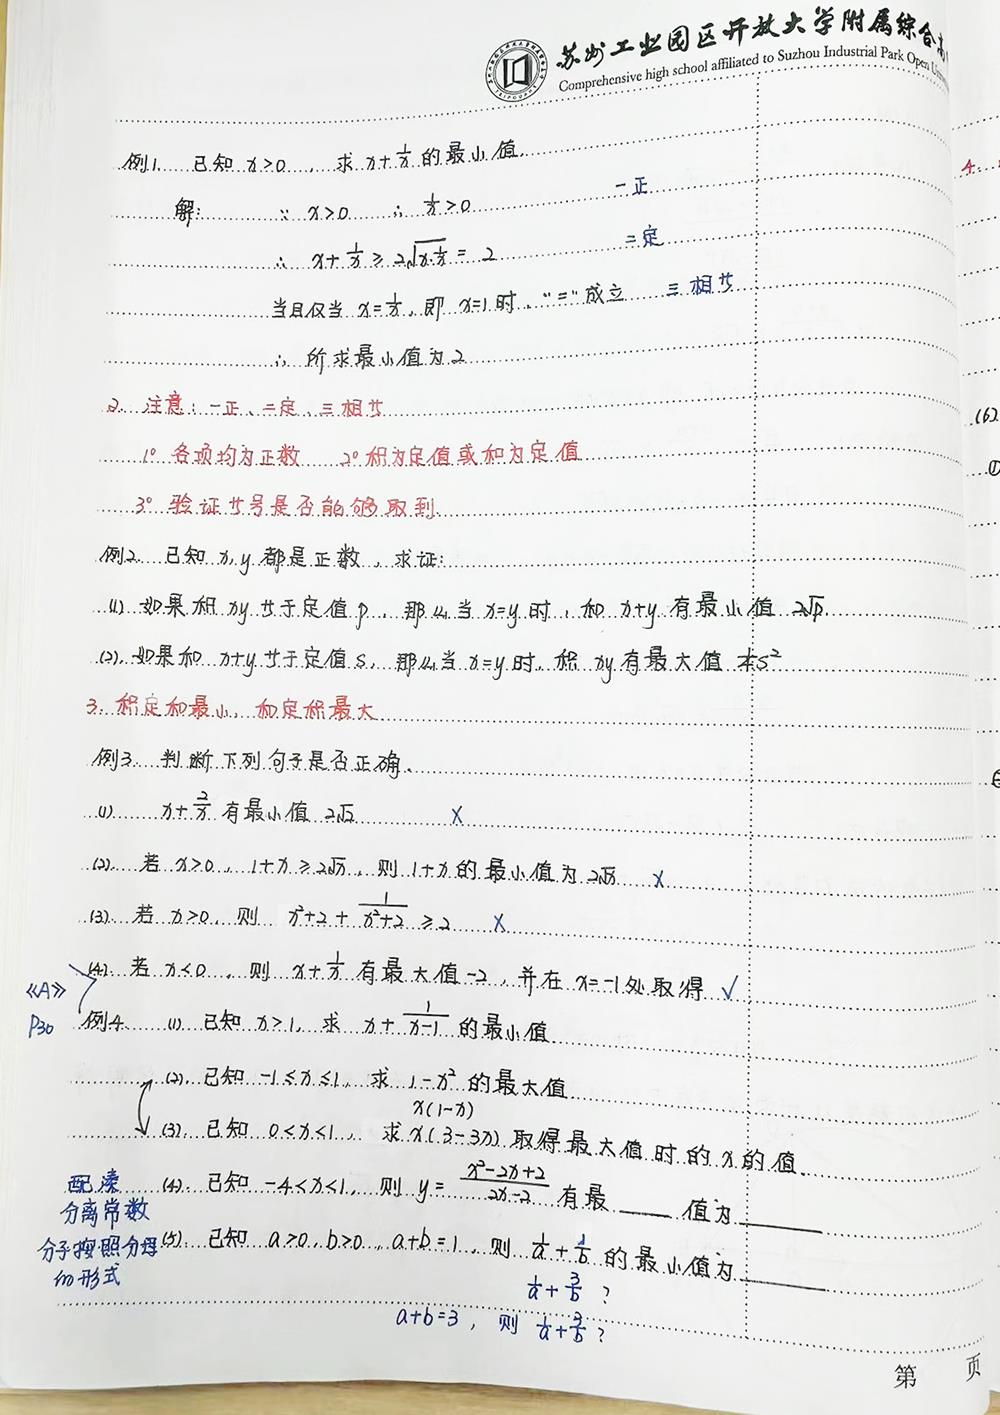 苏州工业园区开放大学附属综合高
Comprehensive high school affiliated to Suzhou Industrial Park Open Univ
例1. 已知 x>0 , 求 x+1/x 的最小值.
解: ∵ x>0 ∴ 1/x>0 一正
∴ x+1/x ≥ 2√(x·1/x) = 2 二定
当且仅当 x=1/x, 即 x=1 时, "=" 成立 三相等
∴ 所求最小值为2
2. 注意: 一正、二定、三相等
1° 各项均为正数 2° 积为定值或和为定值
3° 验证等号是否能够取到
例2. 已知 x, y 都是正数, 求证:
(1) 如果积 xy 等于定值 p, 那么当 x=y 时, 和 x+y 有最小值 2√p.
(2). 如果和 x+y 等于定值 s, 那么当 x=y 时, 积 xy 有最大值 1/4 s²
3. 积定和最小, 和定积最大
例3. 判断下列句子是否正确.
(1) x+2/x 有最小值 2√2 ×
(2). 若 x>0, 1+x ≥ 2√x, 则 1+x 的最小值为 2√x ×
(3). 若 x>0, 则 x²+2 + 1/(x²+2) ≥ 2 ×
(4). 若 x<0, 则 x+1/x 有最大值 -2, 并在 x=-1处取得 √
《A》
P30
例4. (1) 已知 x>1, 求 x + 1/(x-1) 的最小值
(2). 已知 -1≤x≤1, 求 1-x² 的最大值
x(1-x)
(3). 已知 0<x<1, 求 x(3-3x) 取得最大值时的x的值.
(4). 已知 -4<x<1, 则 y = (x²-2x+2)/(2x-2) 有最____值为______
配凑
分离常数
分子按照分母
的形式
(5). 已知 a>0, b>0, a+b=1, 则 1/a + 1/b 的最小值为______
1/a + 3/b ?
a+b=3, 则 1/a+3/b ?
第 页
4.
(6)
①